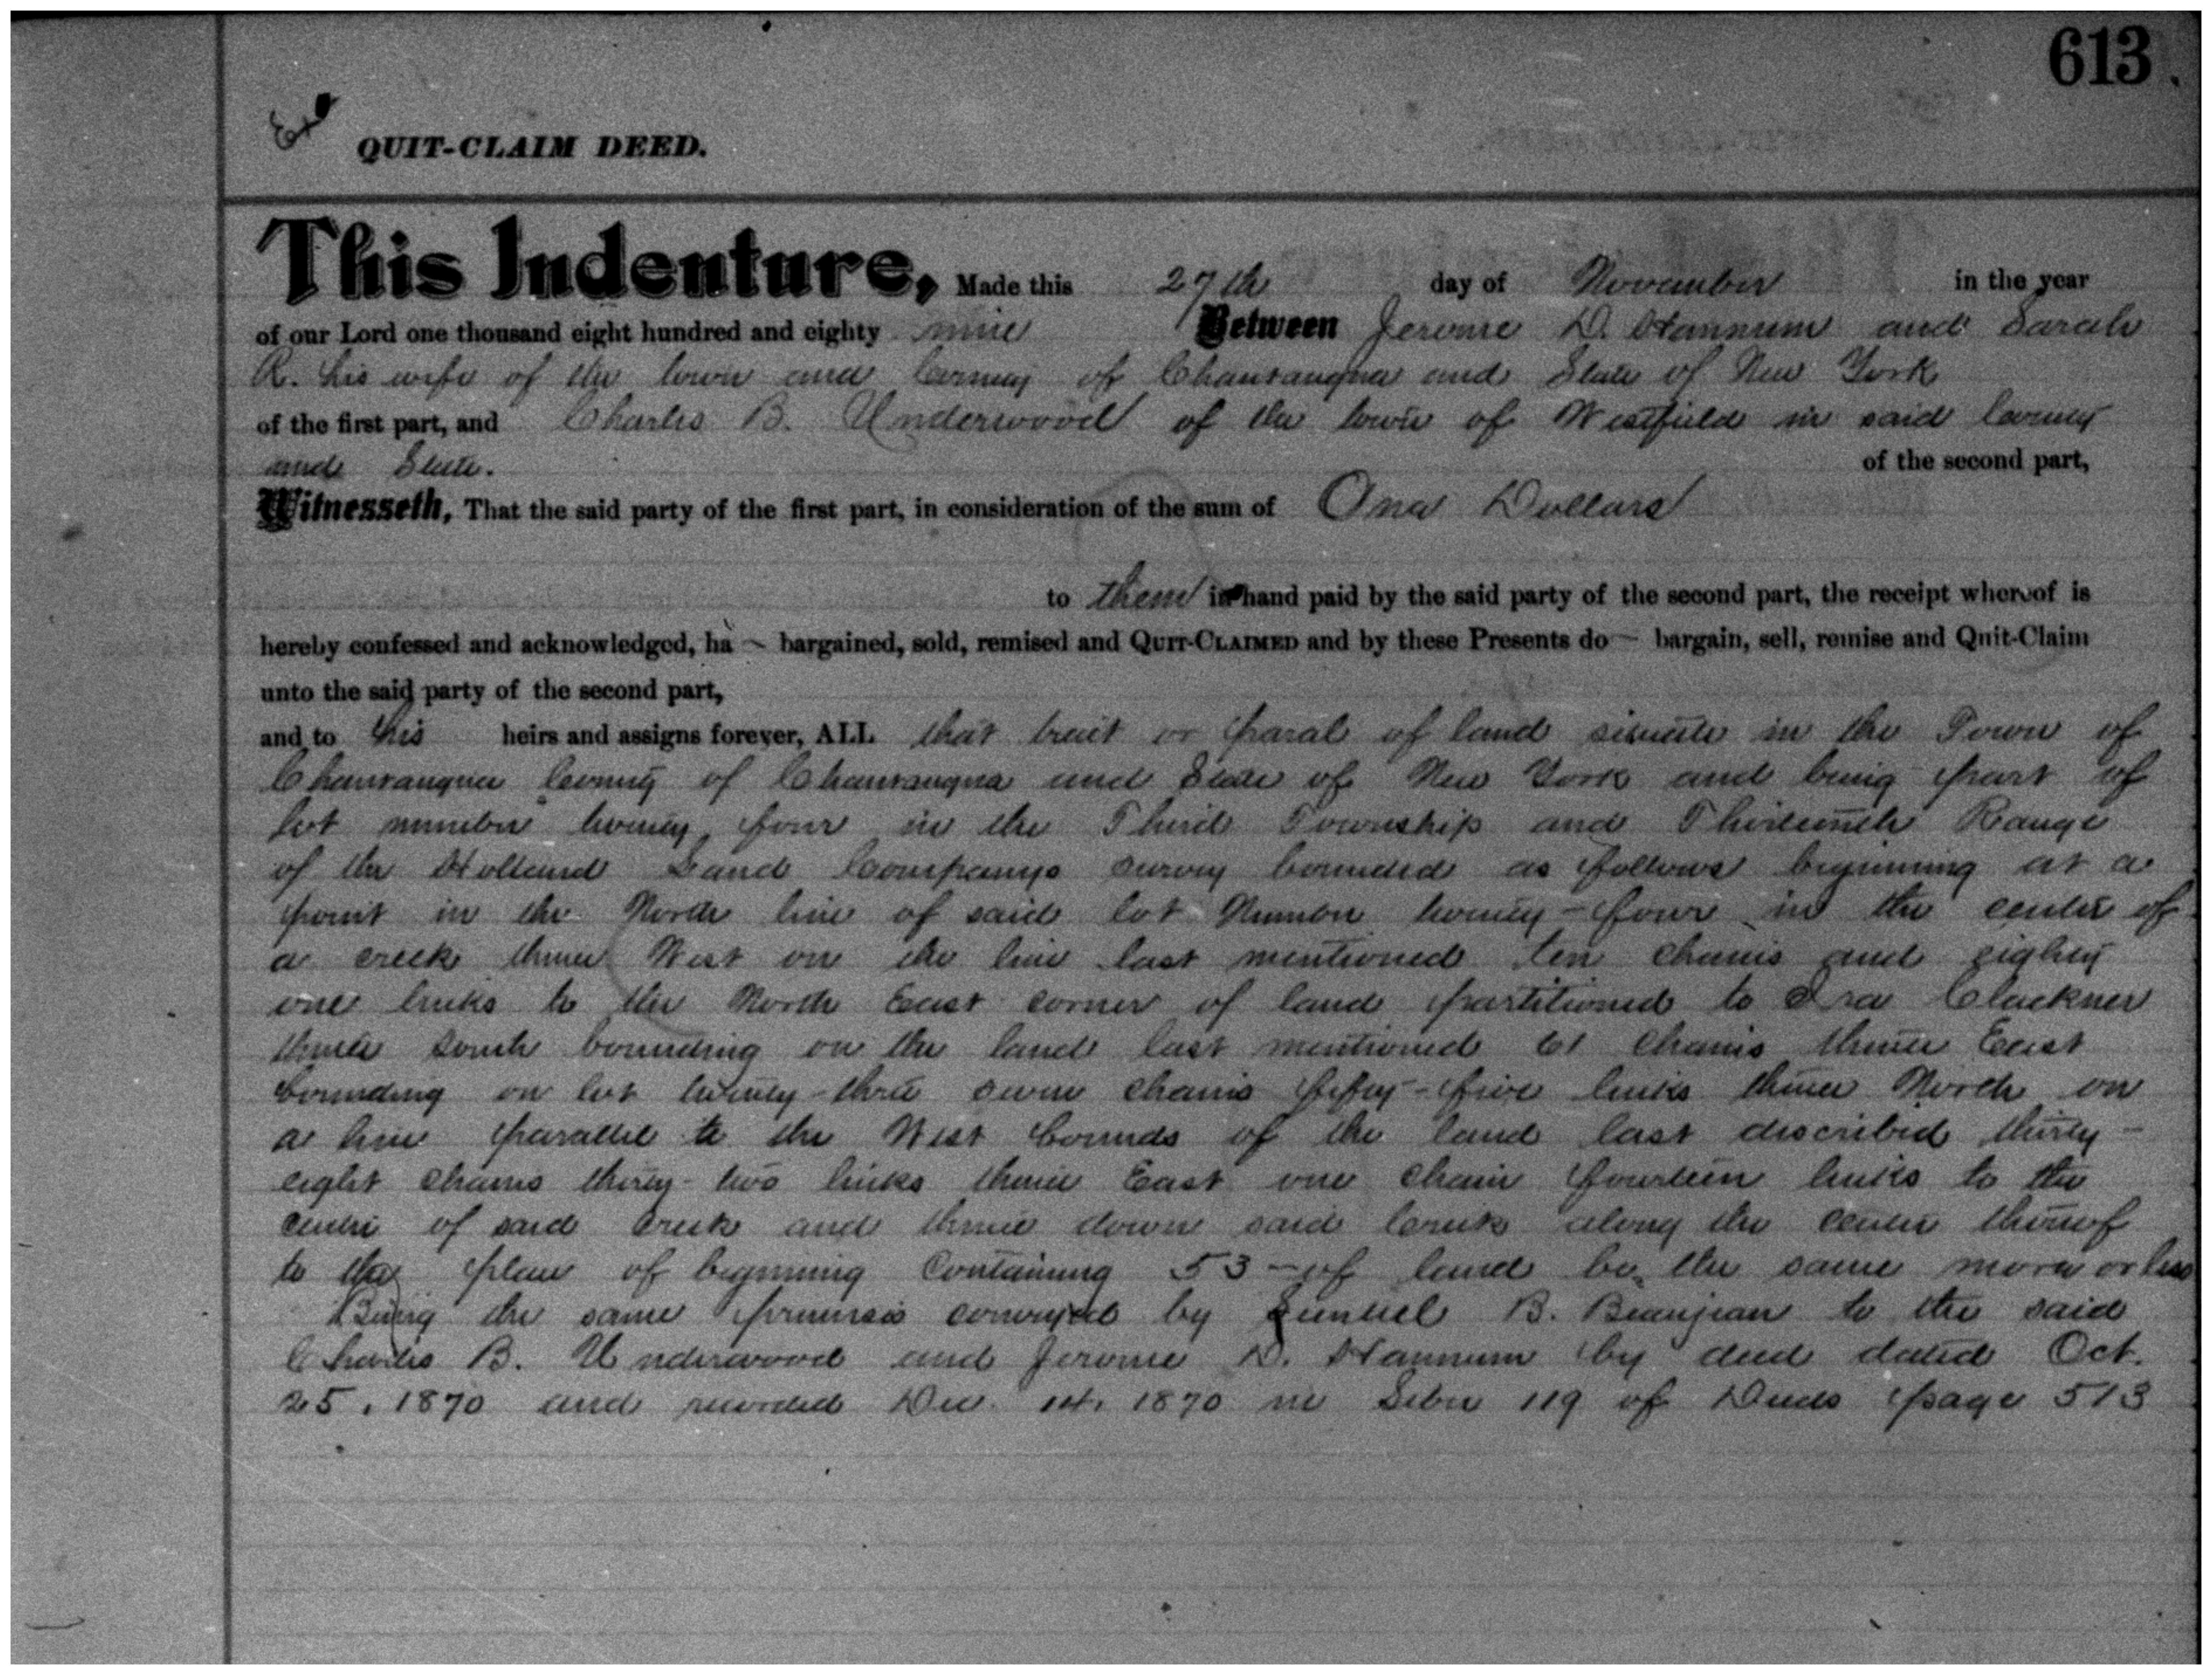 613.
Exd
QUIT-CLAIM DEED.
This Indenture, Made this 27th day of November in the year
of our Lord one thousand eight hundred and eighty nine Between Jerome D. Hannum and Sarah
R. his wife of the town and County of Chautauqua and State of New York
of the first part, and Charles B. Underwood of the town of Westfield in said County
and State. of the second part,
Witnesseth, That the said party of the first part, in consideration of the sum of One Dollars
to them in hand paid by the said party of the second part, the receipt whereof is
hereby confessed and acknowledged, ha — bargained, sold, remised and QUIT-CLAIMED and by these Presents do — bargain, sell, remise and Quit-Claim
unto the said party of the second part,
and to his heirs and assigns forever, ALL that tract or parcel of land situate in the Town of
Chautauqua County of Chautauqua and State of New York and being part of
lot number twenty four in the Third Township and Thirteenth Range
of the Holland Land Companys survey bounded as follows beginning at a
point in the North line of said lot Number twenty-four in the center of
a creek thence West on the line last mentioned ten chains and eighty
one links to the North East corner of land partitioned to Ira Clackner
thence South bounding on the land last mentioned 61 chains thence East
bounding on lot twenty-three seven chains fifty-five links thence North on
a line parallel to the West bounds of the land last described thirty-
eight chains thirty-two links thence East one chain fourteen links to the
centre of said Creek and thence down said Creek along the center thereof
to the place of beginning Containing 53 — of land be the same more or less
Being the same premises conveyed by B. Beaujean to the said
Charles B. Underwood and Jerome D. Hannum by deed dated Oct.
25, 1870 and recorded Dec. 14, 1870 in Liber 119 of Deeds page 513